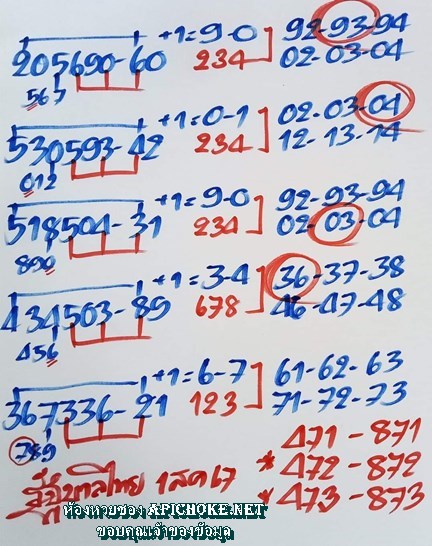 +1=9-0 92-93-94
205690-60 234 02-03-04
567
+1=0-1 02-03-04
530593-42 234 12-13-14
012
+1=9-0 92-93-94
518504-31 234 02-03-04
890
+1=3-4 36-37-38
434503-89 678 46-47-48
456
+1=6-7 61-62-63
367336-21 123 71-72-73
789
471-871
* 472-872
* 473-873
1 สค 67
ห้องหวยซอง APICHOKE.NET
ขอบคุณเจ้าของข้อมูล